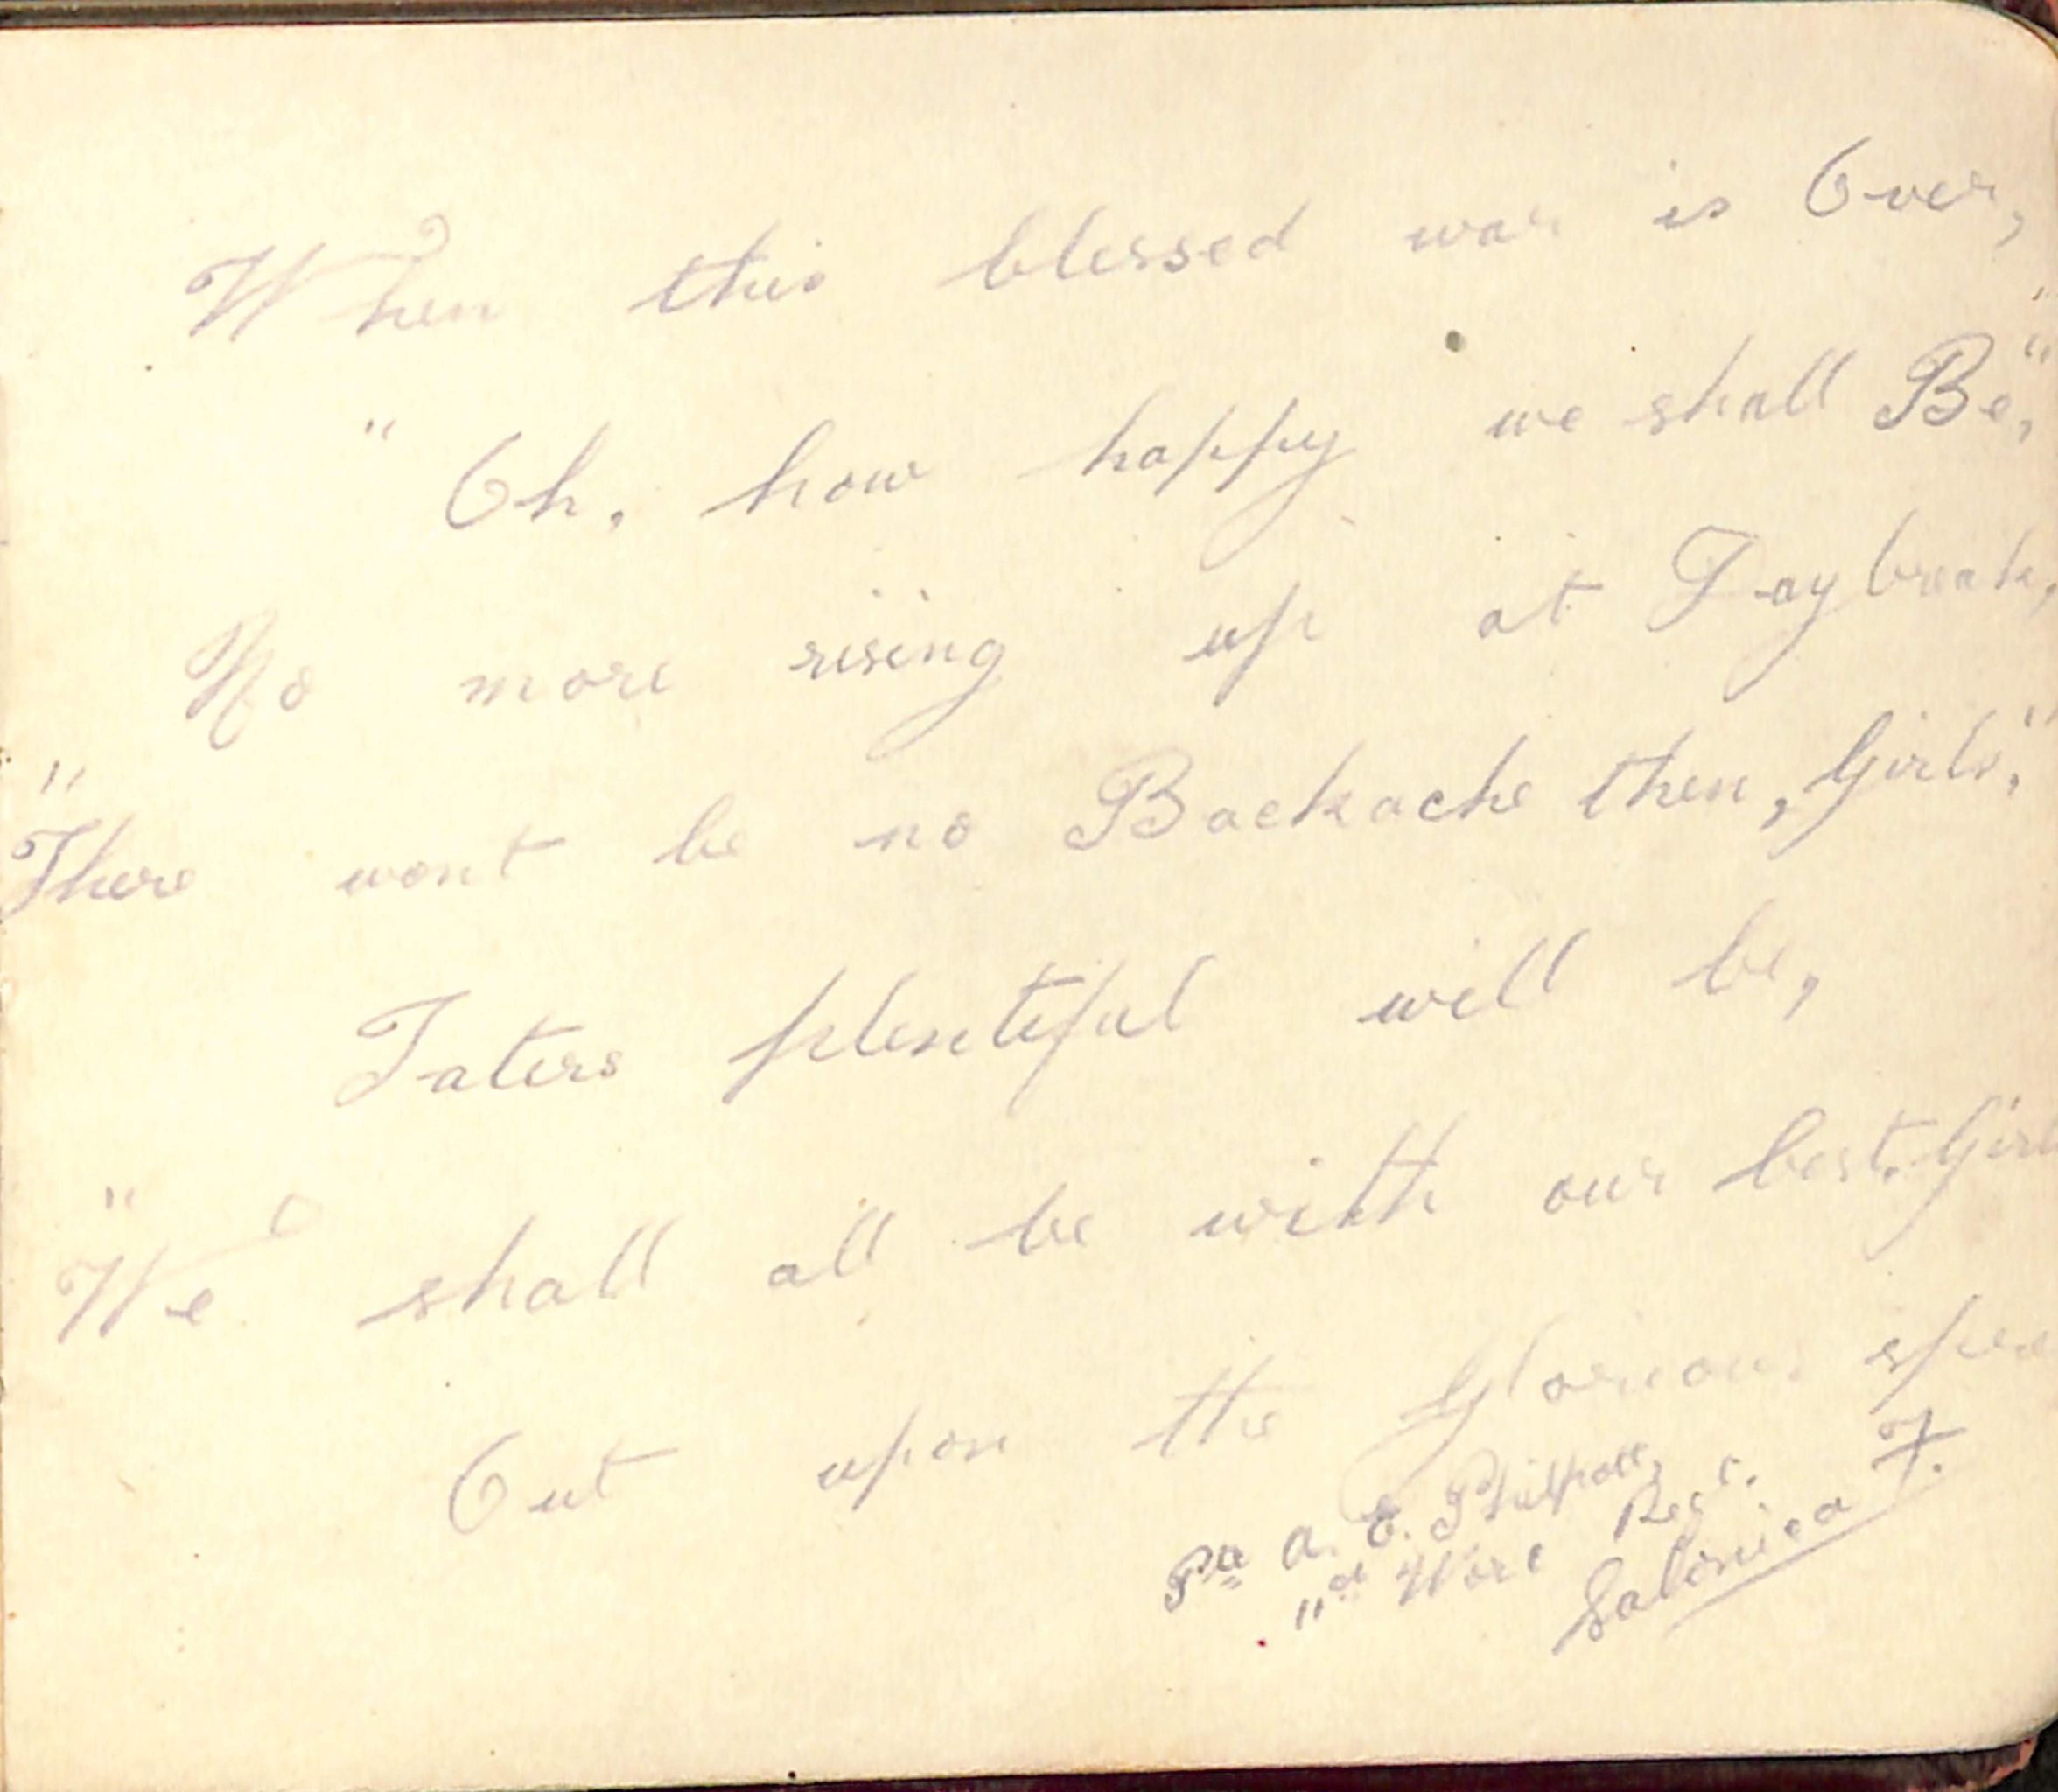 When this blessed war is Over,
"Oh, how happy we shall Be,"
No more rising up at Daybreak,
"There wont be no Backache then, Girls,"
Taters plentiful will be,
"We shall all be with our best Girl
Out upon the Glorious
Pte A. E. Philpott,
11th Worc Regt.
Salonica F.